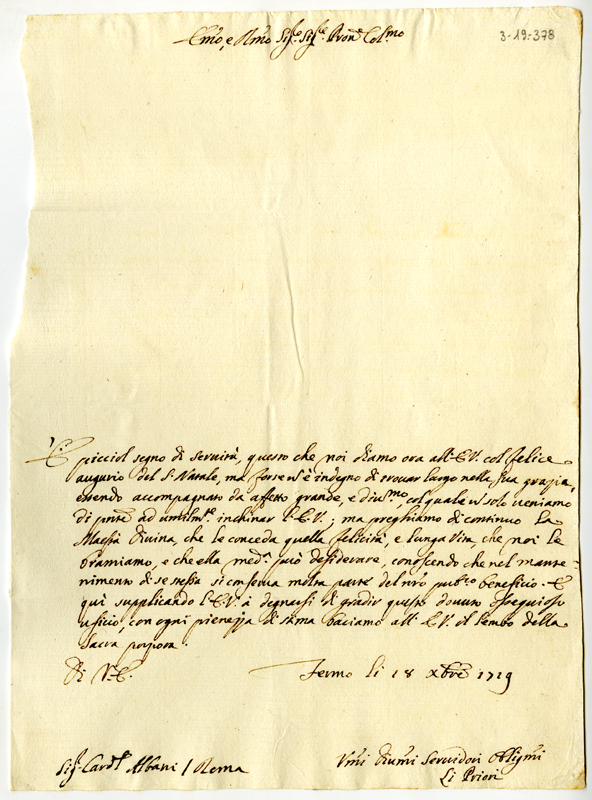 Em̃o, e Rm̃o Sig.re Sig.re Pron.e Col.mo
3-19-378
È picciol segno di servitù, questo che noi diamo ora all'E.V. col felice
augurio del S. Natale, ma forse nõ è indegno di trovar luogo nella Sua grazia,
essendo accompagnato da affetto grande, e div.mo, col quale nõ solo veniamo
di pñte ad umilm.te inchinar l'E.V.; ma preghiamo di continuo la
Maestà divina, che le conceda quella felicità, e lunga vita, che noi le
bramiamo, e che ella med.a può desiderare, conoscendo che nel mante-
nimento di se stessa si conserva molta parte del nr̃o pub.co beneficio. E
quì supplicando l'E.V. à degnarsi di gradir questo dovuto ossequioso
ufficio, con ogni pienezza di stima baciamo all'E.V. il lembo della
Sacra porpora.
Di V.E.
Fermo li 18 Xbre 1719
Sig.r Card.le Albani / Roma
Vm̃i Divm̃i Servidori Obligm̃i
Li Priori